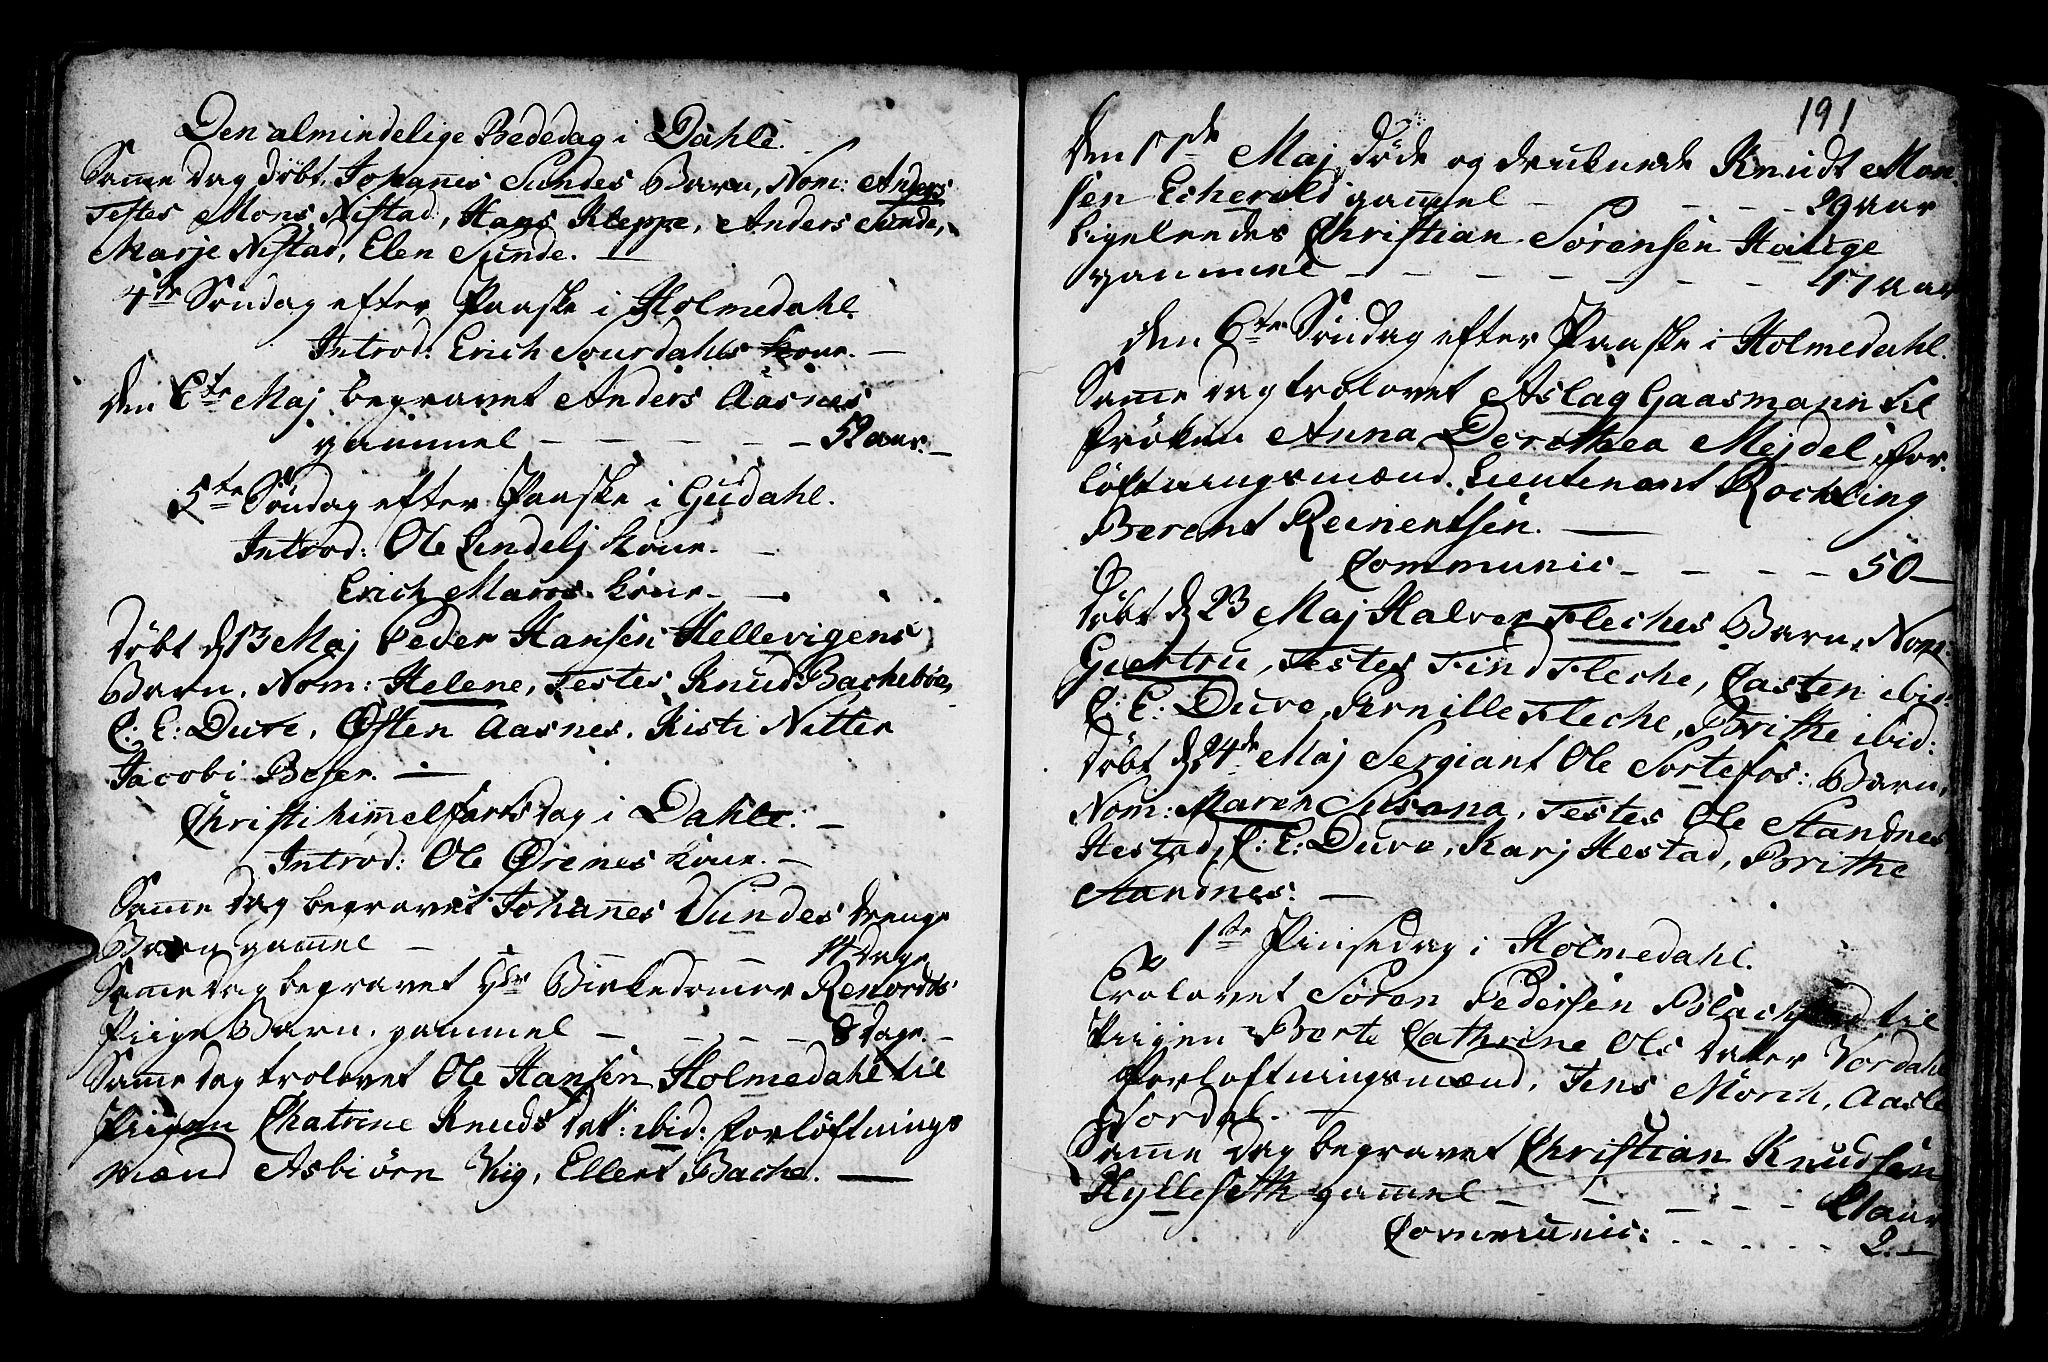 Den almindelige Bededag i Dahle.
Same dag døbt Johanes Sundes Barn, Nom: Anders
Testes Mons Nistad, Hans Kleppe, Anders Sunde,
Marje Nistad, Elen Sunde.
4de Søndag efter Paaske i Holmedahl.
Introd: Erich Sourdahls kone.
den 6te Maj begravet Anders Aasnes
gammel - - - - - 52 aar.
5te Søndag efter Paaske i Gudahl.
Introd: Ole Lendelj kone.
Erich kone.
døbt d 13 Maj Peder Hansen Hellevigens
Barn, Nom: Helene, Testes Knud Bachebøe,
C: E: Dure, Østen Aasnes, Kisti Nitter
Jacobi
Christi himelfarts dag i Dahle.
Introd: Ole Ørenes kone.
Same dag begravet Johanes Sundes drenge
Barn gamel - - 14 dage
Same dag begravet Birkedomer
Piige Barn, gammel - - - - 8 dage.
Same dag trolovet Ole Hansen Holmedahl til
Piigen Chatrine Knuds dat: ibid: forløftnings
mænd Asbiørn Viig, Ellert Bache.
191
den 17de Maj døde og druknede Knudt Mon-
sen Escherold gamel - - - - 29 aar
ligeledes Christian Sørensen Hauge
gammel - - - - - 57 aar
den 6te Søndag efter Paaske i Holmedahl.
Same dag trolovet Aslag Gaasmann til
frøken Anna Dorothea Mejdel, for-
løftningsmænd. Lieutenant Rochling
Berent Reinentsen.
Communic - - - - 50
døbt d 23 Maj Halvor Fleches Barn, Nom:
Guertru, Testes Find Fleche, Casten ibid:
C: E: Dure, Pernille Fleche, Brithe ibid:
døbt d 24de Maj Sergiant Ole Sortefos: Barn,
Nom: Maren Susana, Testes Ole Standnes
Hestad, C: E: Dure, Karj Hestad, Brithe
Standnes.
1te Pinsedag i Holmedahl.
Trolovet Søren Pedersen til
Piigen Berte Cathrine Ols datter Vordahl
forløftningsmænd, Jens Mørch, Aasle
Vordal.
Same dag begravet Christian Knudsen
Hylleseth gamel - - - - - 21 aar
Communic: - - - - - 2.